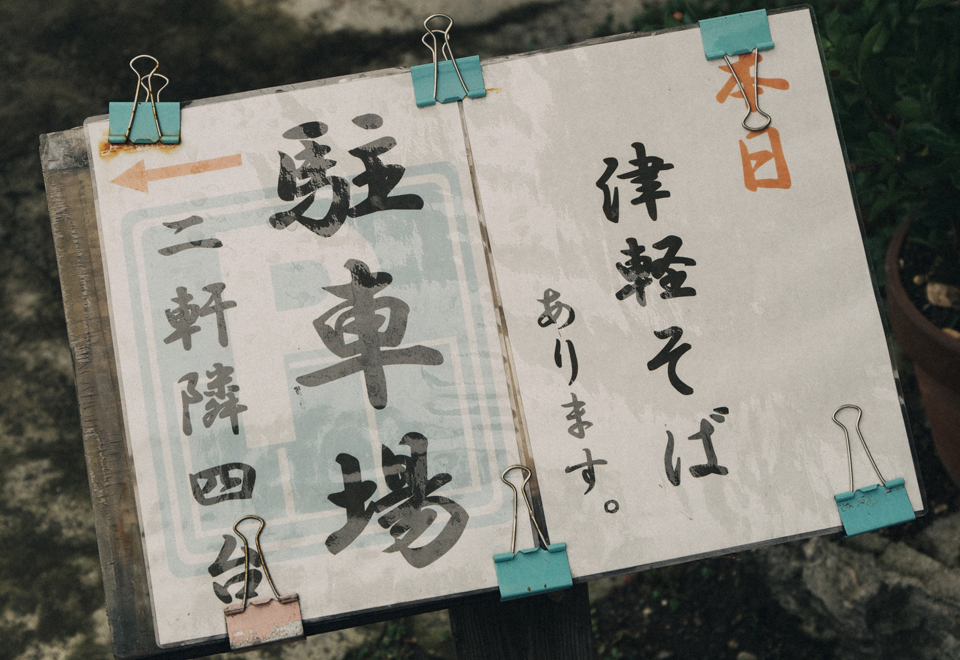 本日
津軽そば
あります。
駐車場
二軒隣四台
P